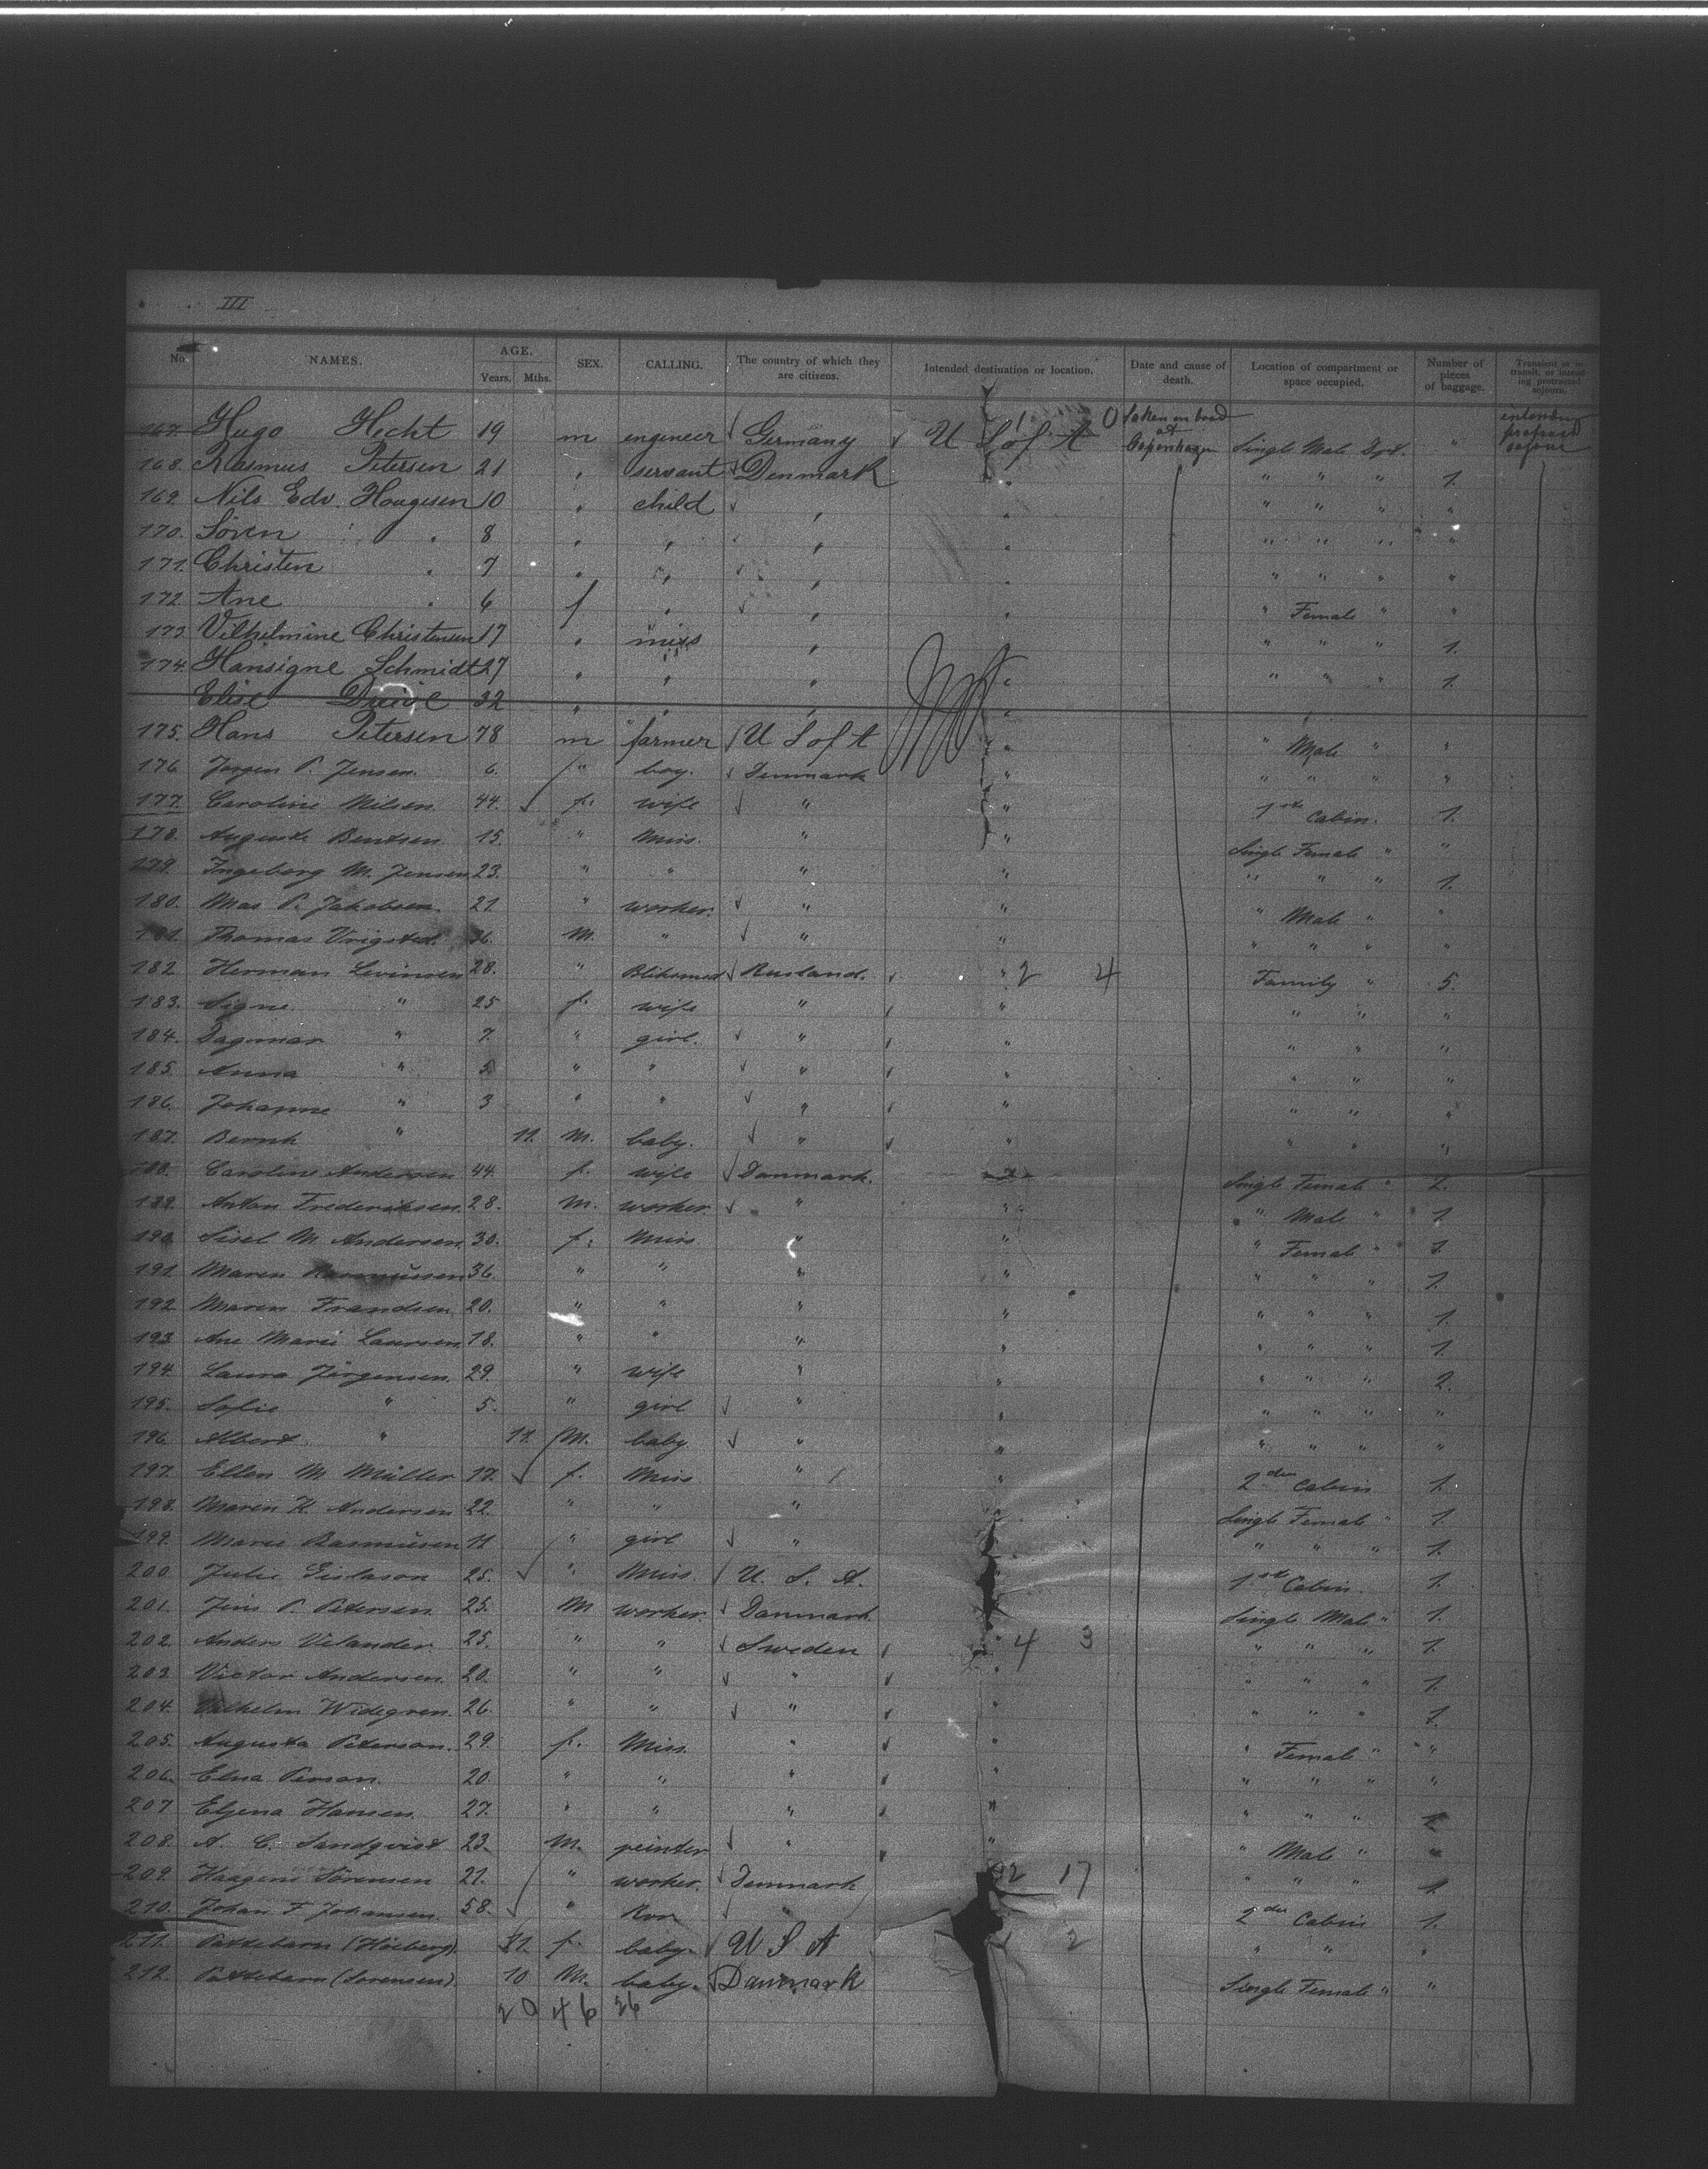 III
No. NAMES. AGE. Years. Mths. SEX. CALLING. The country of which they are citizens. Intended destination or location. Date and cause of death. Location of compartment or space occupied. Number of pieces of baggage. Transient or in transit, or intending protracted sojourn.
167. Hugo Hecht 19 m engineer Germany U S of A 1 0 taken on board at Copenhagen Single Male Dpt. "
168. Rasmus Petersen 21 " servant Denmark " " " " 1.
169. Nils Edv. Hougesen 10 " child " " " " " "
170. Sören " 8 " " " " " " " "
171. Christen " 7 " " " " " " " "
172. Ane " 6 f " " " " Female " "
173. Vilhelmine Christensen 17 " miss " " " " 1.
174. Hansigne Schmidt 27 " " " " " " " 1.
Elise 32 " " " "
175. Hans Petersen 78 m farmer U S of A " " Male " "
176. Jorgen P. Jensen. 6. " boy. Denmark " " " " "
177. Caroline Nilsen. 44. f. wife " " 1ste Cabin. 1.
178. Auguste Bentsen 15. " Miss. " " Single Female " "
179. Ingeborg M. Jensen 23. " " " " " " " 1.
180. P. Jakobsen. 21. " worker. " " " Male " "
181. Thomas Vrigsted. 36. M. " " " " " " "
182. Herman Levinsen 28. " Rusland. " 2 4 Family " 5.
183. Signe " 25 f. wife " " " " "
184. Dagmar " 7. " girl. " " " " "
185. Anna " 5. " " " " " " "
186. Johanne " 3 " " " " " " "
187. Bernh " 11. M. baby. " " " " "
188. Caroline Andersen 44. f. wife Danmark. " Single Female " 1.
189. Anton Frederiksen. 28. M. worker. " " " Male " 1.
190. Sisel M. Andersen. 30. f. Miss. " " " Female " 1.
191. Maren Rasmussen 36. " " " " " " " 1.
192. Maren Frandsen. 20. " " " " " " " 1.
193. Ane Marie Laursen. 18. " " " " " " " 1.
194. Laura Jörgensen. 29. " wife " " " " " 2.
195. Sofie " 5. " girl " " " " " "
196. Albert " 11. M. baby " " " " " "
197. Ellen M. Müller 17. f. Miss. " " 2den Cabin 1.
198. Maren K. Andersen 22. " " " " Single Female " 1.
199. Marie Rasmüsen 11 " girl " " " " " 1.
200. Julie 25. " Miss. U. S. A. 1ste Cabin. 1.
201. Jens P. Petersen. 25. M worker. Danmark. Single Male " 1.
202. Anders Velander. 25. " " Sweden " 4 3 " " " 1.
203. Victor Andersen. 20. " " " " " " " 1.
204. Vilhelm Widegren. 26. " " " " " " " 1.
205. Augusta Peterson. 29. f. Miss. " " " Female " "
206. Elna Person. 20. " " " " " " " "
207. Hansen. 27. " " " " " " "
208. A. C. Sandqvist 23. M. peinter " " " Male " "
209. Sörensen 21. " worker. Denmark 17 " " " 1.
210. Johan F Johansen. 58. " " 2den Cabin 1.
211. Pattebarn (Höeberg) 11. f. baby. U S A 2 " " "
212. Pattebarn (Sorensen) 10 M. baby. Danmark Single Female " "
20 46 26